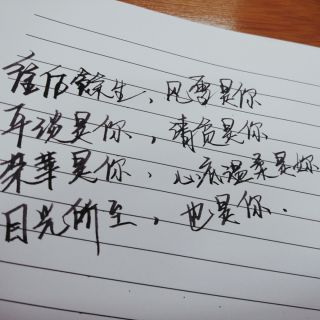 往后餘生、风雪是你
平淡是你，清贫是你
荣華是你、心底温柔是你
目光所至，也是你.